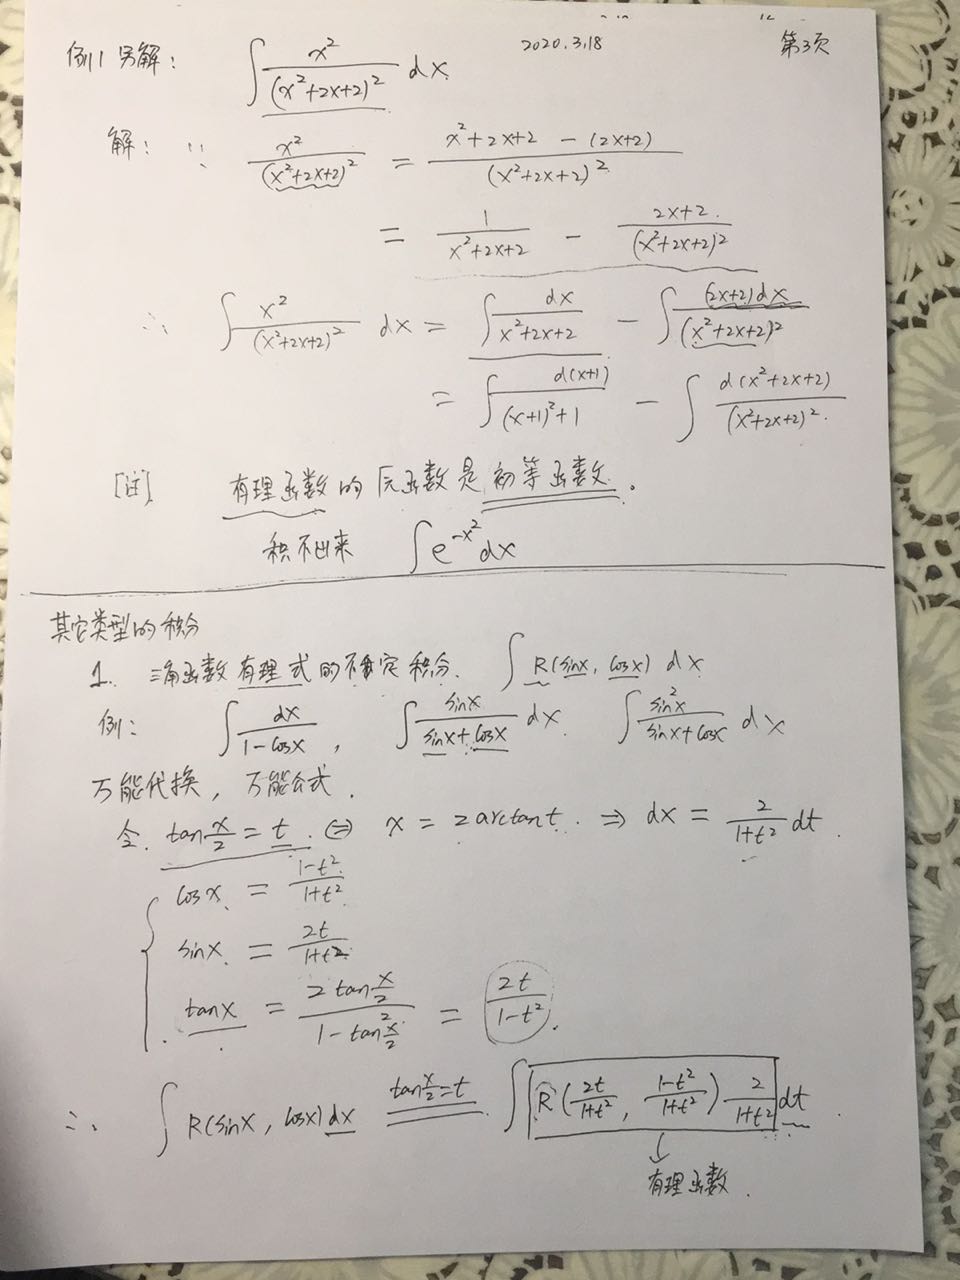 例1 另解: ∫ x²/(x²+2x+2)² dx. 2020.3.18 第3页
解: ∵ x²/(x²+2x+2)² = (x²+2x+2 - (2x+2))/(x²+2x+2)²
= 1/(x²+2x+2) - (2x+2)/(x²+2x+2)²
∴ ∫ x²/(x²+2x+2)² dx = ∫ dx/(x²+2x+2) - ∫ (2x+2)dx/(x²+2x+2)²
= ∫ d(x+1)/((x+1)²+1) - ∫ d(x²+2x+2)/(x²+2x+2)².
[注] 有理函数的原函数是初等函数。
积不出来 ∫e^(-x²)dx
其它类型的积分
1. 三角函数有理式的不定积分. ∫R(sinx, cosx) dx
例: ∫ dx/(1-cosx), ∫ sinx/(sinx+cosx) dx. ∫ sin²x/(sinx+cosx) dx
万能代换, 万能公式.
令. tan(x/2) = t. ⇔ x = 2arctant. ⇒ dx = 2/(1+t²) dt.
{ cosx. = (1-t²)/(1+t²)
sinx. = 2t/(1+t²)
tanx = 2tan(x/2)/(1-tan²(x/2)) = 2t/(1-t²).
∴ ∫R(sinx, cosx)dx =(tan(x/2)=t)= ∫R(2t/(1+t²), (1-t²)/(1+t²)) 2/(1+t²) dt.
↓
有理函数.